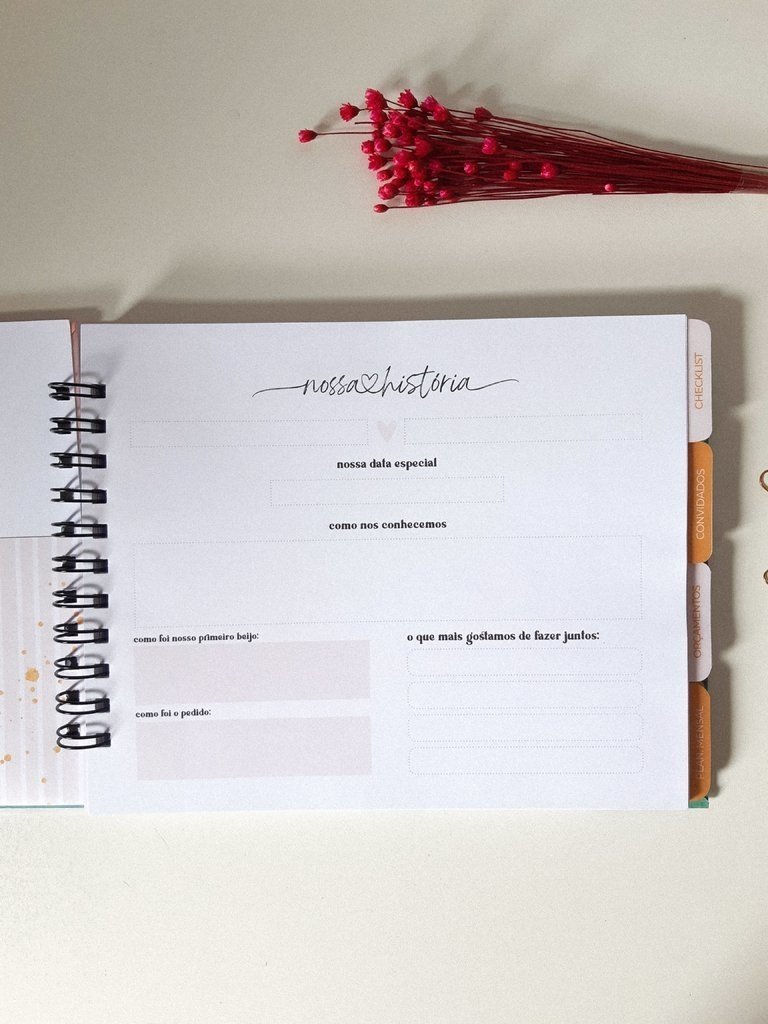 nossa história
nossa data especial
como nos conhecemos
como foi nosso primeiro beijo:
como foi o pedido:
o que mais gostamos de fazer juntos:
CHECKLIST
CONVIDADOS
ORÇAMENTOS
PLAN. MENSAL